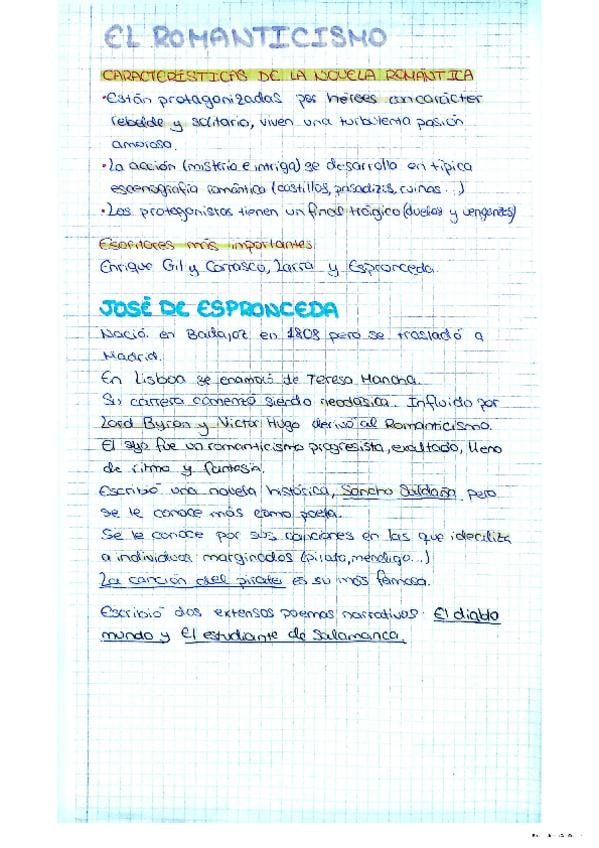 EL ROMANTICISMO
CARACTERÍSTICAS DE LA NOVELA ROMÁNTICA
·Están protagonizadas por héroes con carácter
rebelde y solitario, viven una turbulenta pasión
amorosa.
·La acción (misterio e intriga) se desarrolla en típica
escenografía romántica (castillos, pasadizos, ruinas...)
·Los protagonistas tienen un final trágico (duelos y venganzas)
Escritores más importantes
Enrique Gil y Carrasco, Larra y Espronceda.
JOSÉ DE ESPRONCEDA
Nació en Badajoz en 1808 pero se trasladó a
Madrid.
En Lisboa se enamoró de Teresa Mancha.
Su carrera comenzó siendo neoclásica. Influido por
Lord Byron y Victor Hugo derivó al Romanticismo.
El suyo fue un romanticismo progresista, exaltado, lleno
de ritmo y fantasía.
Escribió una novela histórica, Sancho Saldaña, pero
se le conoce más como poeta.
Se le conoce por sus canciones en las que idealiza
a individuos marginados (pirata, mendigo...)
La canción del pirata es su más famosa.
Escribió dos extensos poemas narrativos: El diablo
mundo y El estudiante de Salamanca.